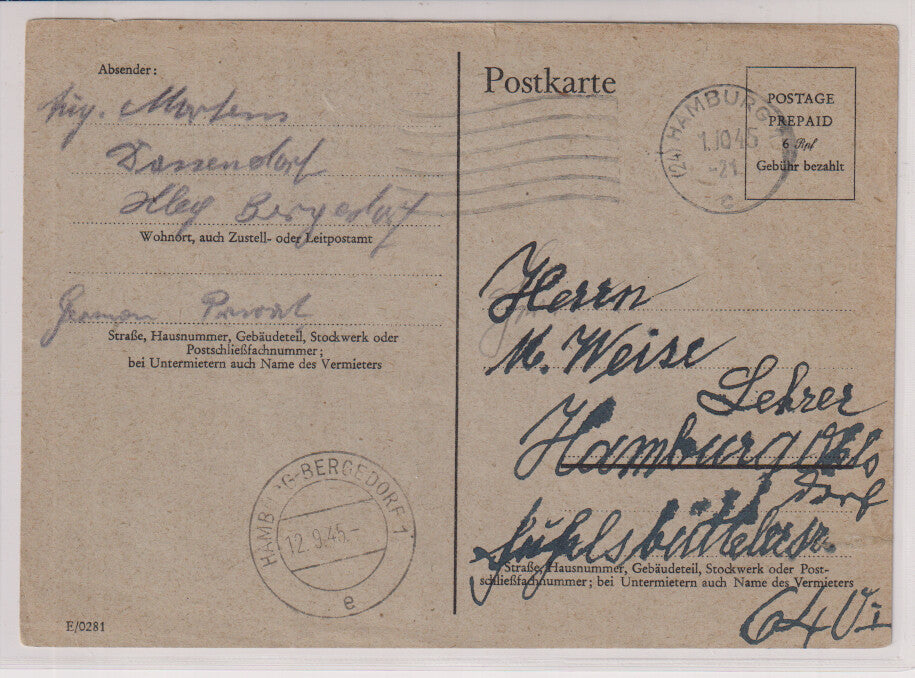 Absender:
Aug. Martens
Dassendorf
Hbg Bergedorf
Wohnort, auch Zustell- oder Leitpostamt
German Privat
Straße, Hausnummer, Gebäudeteil, Stockwerk oder
Postschließfachnummer;
bei Untermietern auch Name des Vermieters
HAMBURG-BERGEDORF 1
12.9.45.-
e
E/0281
Postkarte
(24) HAMBURG
1.10.45
-21
c
POSTAGE
PREPAID
6 Rpf
Gebühr bezahlt
Herrn
M. Weise
Lehrer
Hamburg Ohls
dorf
Fuhlsbüttelerstr.
Straße, Hausnummer, Gebäudeteil, Stockwerk oder Post-
schließfachnummer; bei Untermietern auch Name des Vermieters